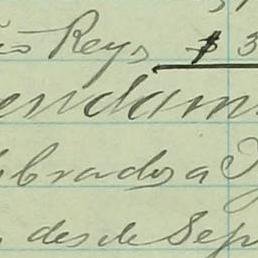 Reys $ 3
endam
brados a
desde Sep